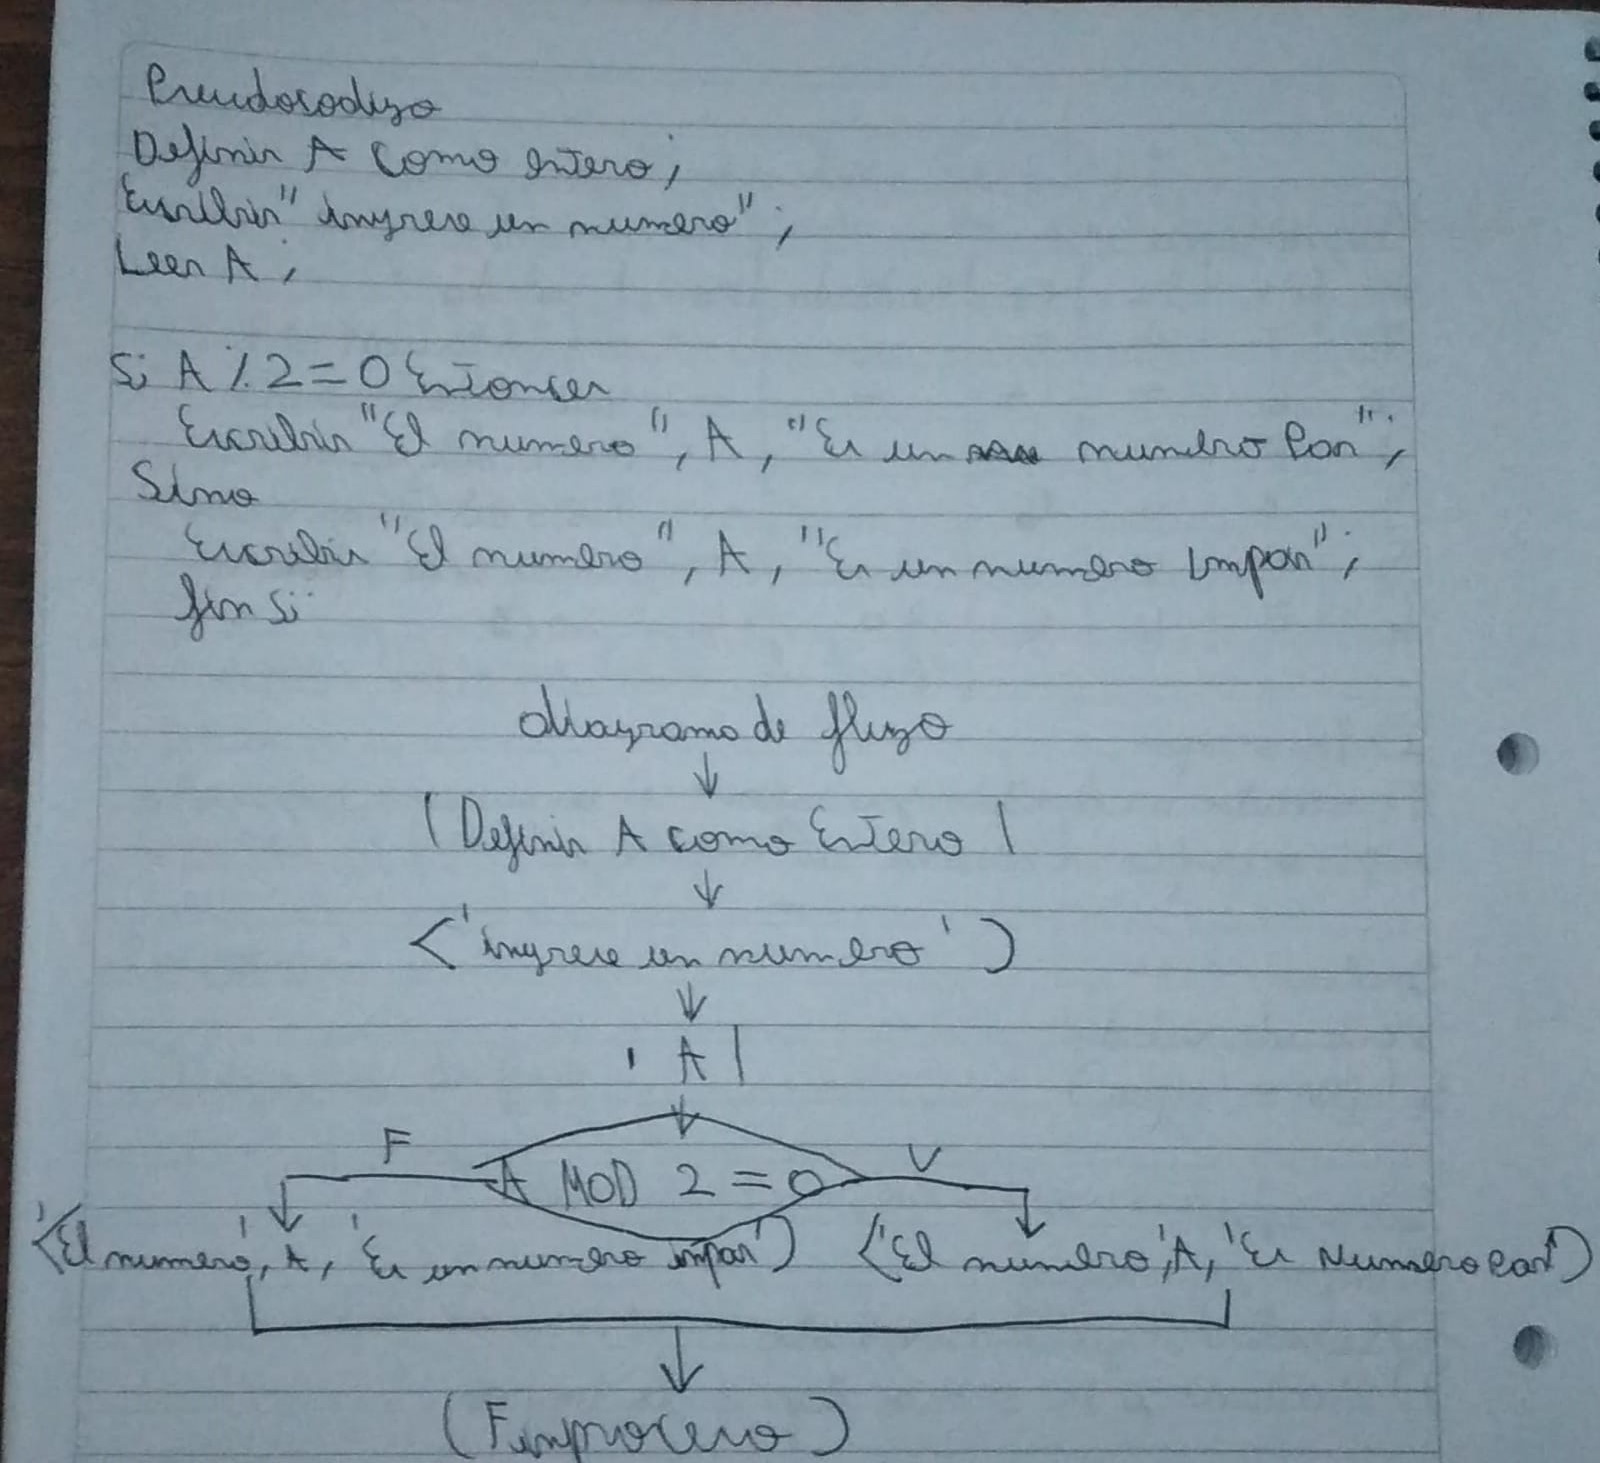 Pseudocodigo
Definir A Como Entero;
Escribir "ingrese un numero";
Leer A;
Si A % 2 = 0 Entonces
Escribir "El numero", A, "Es un numero Par";
Sino
Escribir "El numero", A, "Es un numero Impar";
fin si
diagrama de flujo
Definir A como Entero
'ingrese un numero'
A
F
V
A MOD 2 = 0
'El numero', A, 'Es un numero impar'
'El numero', A, 'Es Numero Par'
(Finproceso)